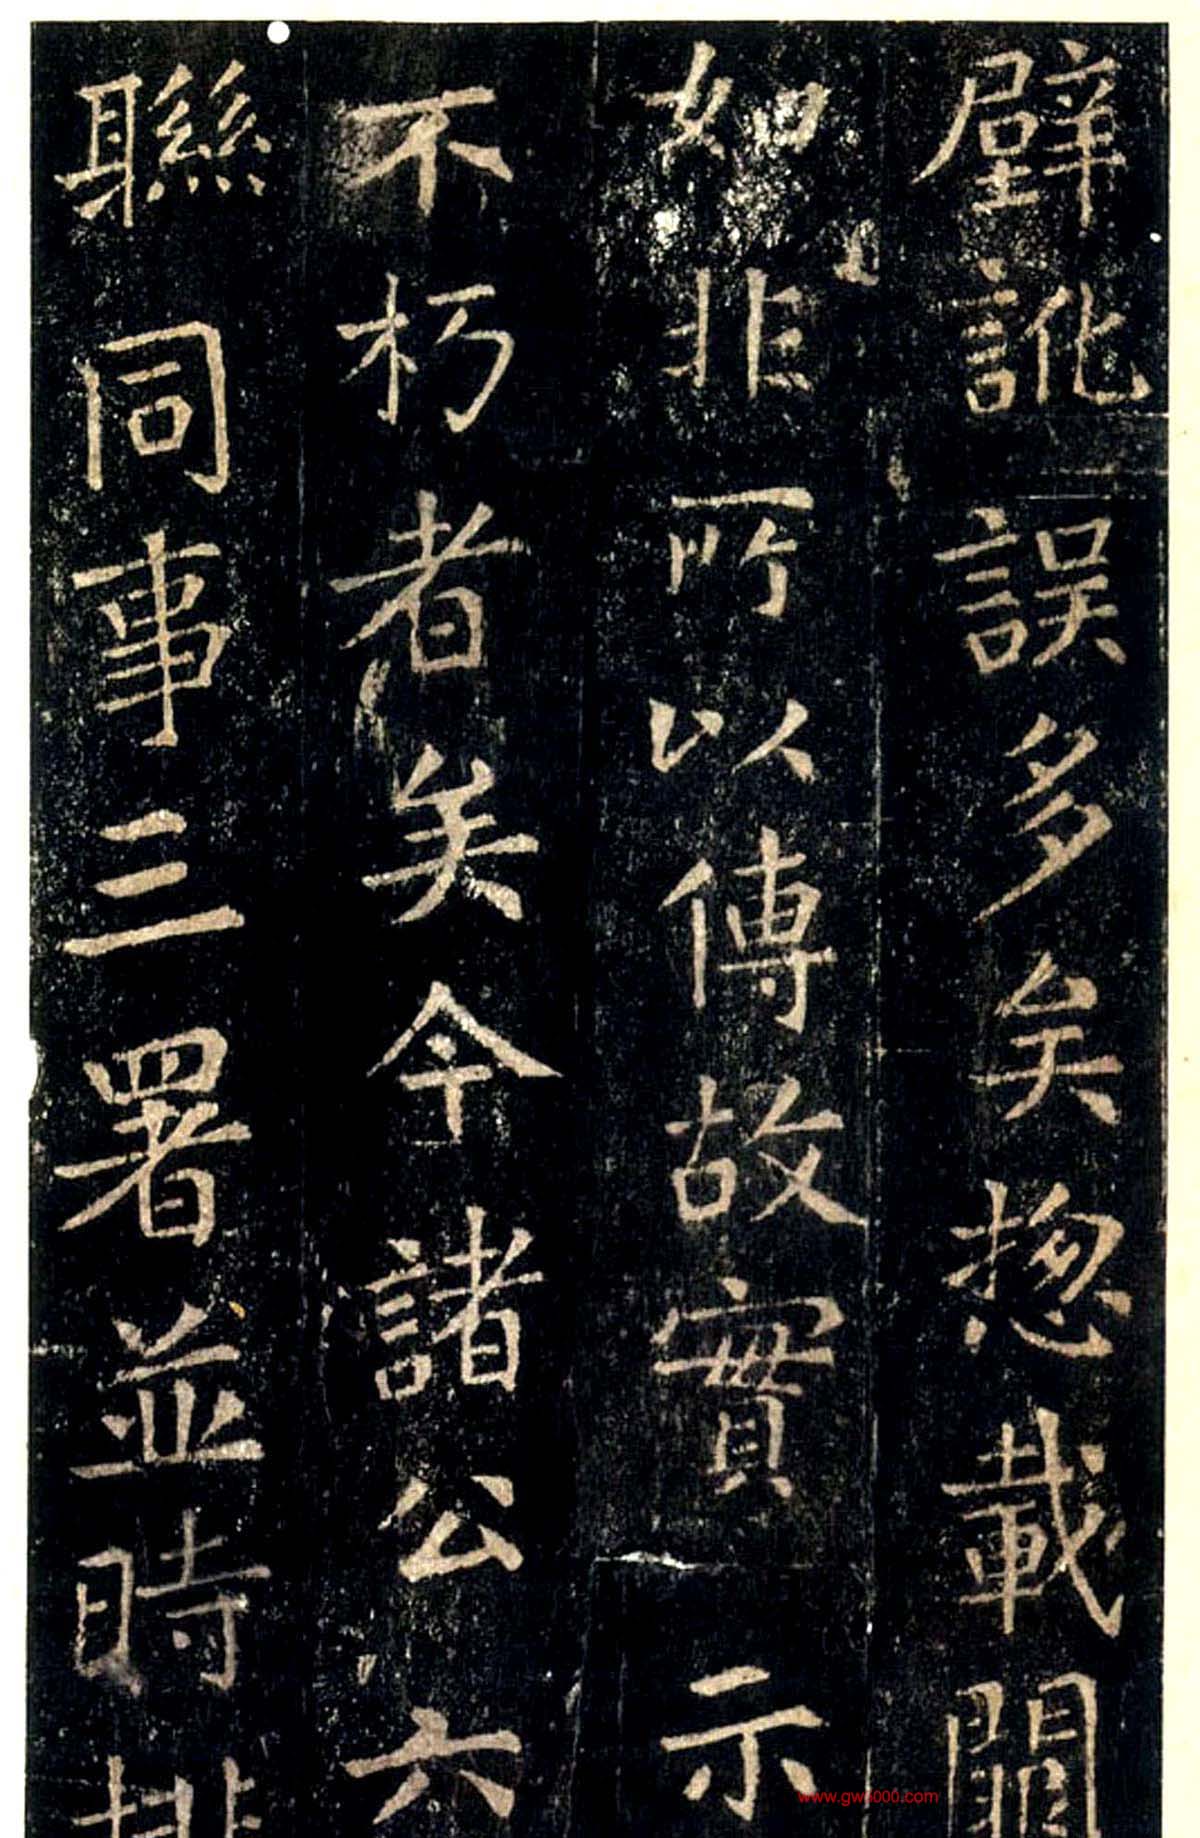 壁訛誤多矣揔載闕
如非所以傳故實示
不朽者矣今諸公六
聯同事三署並時排
www.gw5000.com